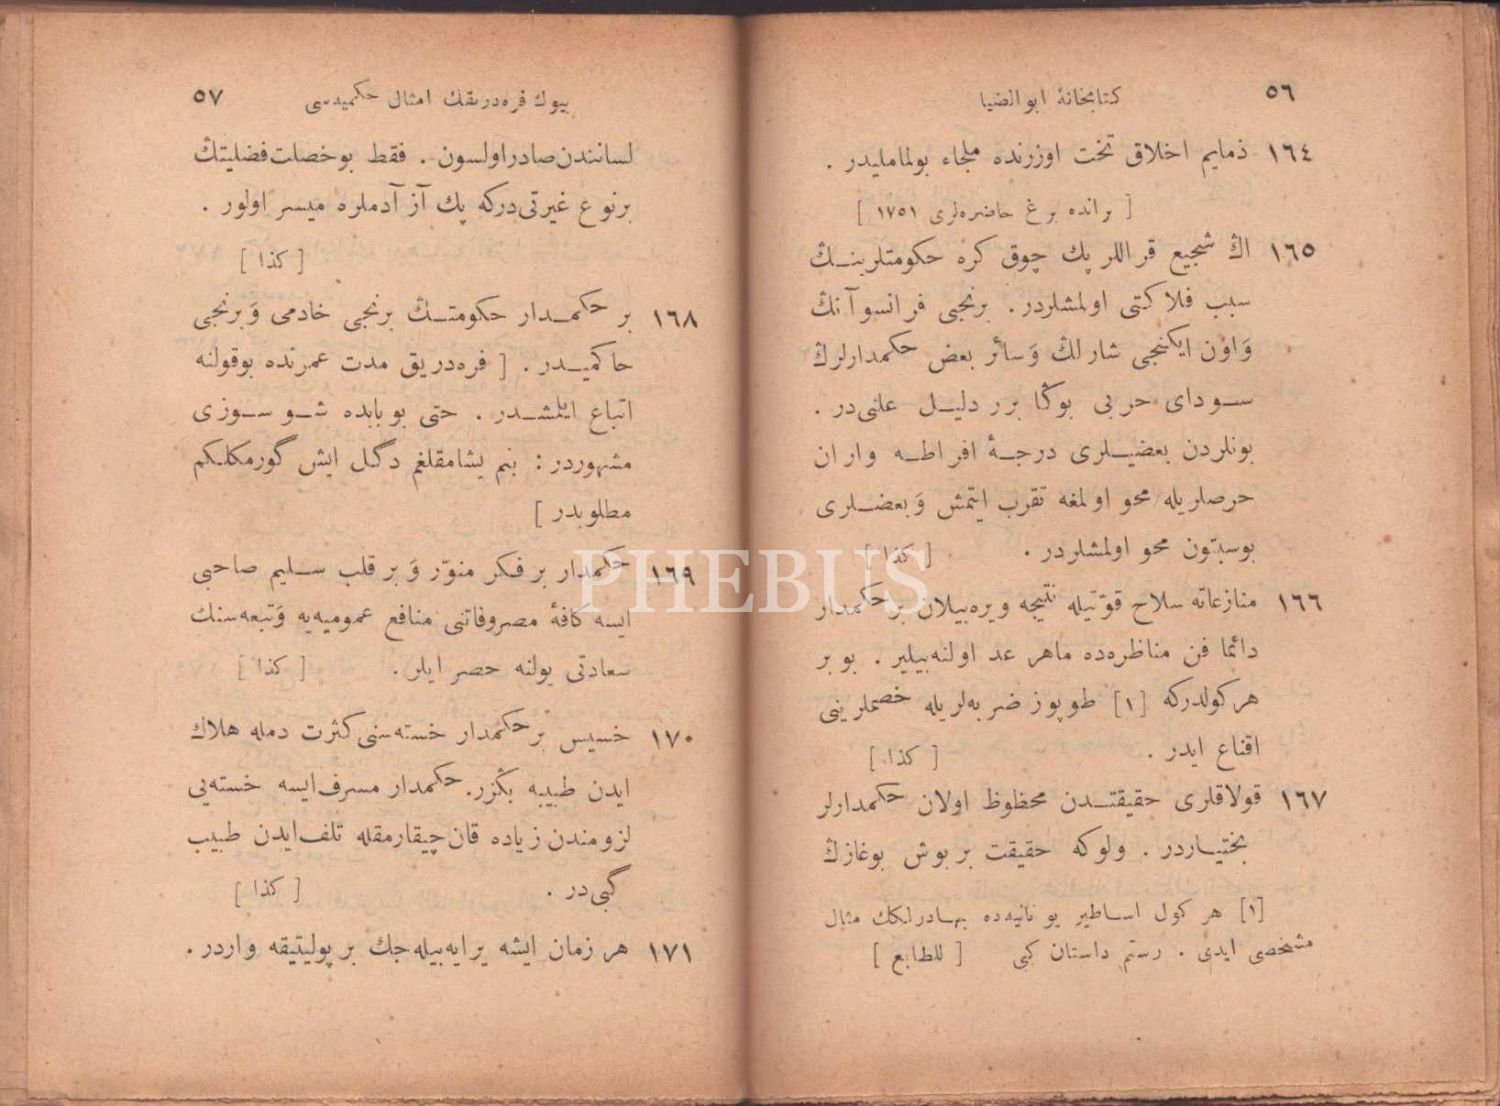 ٥٦ كتابخانهٔ ابوالضيا
١٦٤ ذمايم اخلاق تخت اوزرنده ملجاء بولمامليدر .
[ براندە برغ حاضره‌لرى ١٧٥١ ]
١٦٥ اڭ شجيع قراللر پك چوق كره حكومتلرينڭ
سبب فلاكتى اولمشلردر . برنجى فرانسوآنڭ
وَاون ايكنجى شارلڭ وَسائر بعض حكمدارلرڭ
سوداى حربى بوڭا برر دليل علنى‌در .
بونلردن بعضيلرى درجهٔ افراطه واران
حرصلريله محو اولمغه تقرب ايتمش وَبعضلرى
بوسبتون محو اولمشلردر . [ كذا ]
١٦٦ منازعاته سلاح قوّتيله نتيجه ويره‌بيلان برحكمدار
دائما فن مناظره‌ده ماهر عد اولنه‌بيلير . بو بر
هركولدركه [١] طوپوز ضربه‌لريله خصملرينى
اقناع ايدر . [ كذا ]
١٦٧ قولاقلرى حقيقتدن محظوظ اولان حكمدارلر
بختياردر . ولوكه حقيقت بربوش بوغازڭ
[١] هركول اساطير يونانيه‌ده بهادرلكك مثال
مشخصى ايدى . رستم داستان كبى [ للطابع ]
بيوك فره‌دريقك امثال حكميه‌سى ٥٧
لسانندن صادراولسون . فقط بوخصلت فضليتڭ
برنوع غيرتى‌دركه پك آز آدملره ميسر اولور .
[ كذا ]
١٦٨ بر حكمدار حكومتڭ برنجى خادمى وَبرنجى
حاكميدر . [ فره‌دريق مدت عمرنده بوقولنه
اتباع ايلمشدر . حتى بوبابده شو سوزى
مشهوردر : بنم يشامقلغم دگل ايش گورمكلكم
مطلوبدر ]
١٦٩ حكمدار بر فكر منوّر وَ بر قلب سليم صاحبى
ايسه كافهٔ مصروفاتنى منافع عموميه‌يه وَتبعه‌سنك
سعادتى يولنه حصر ايلر . [ كذا ]
١٧٠ خسيس برحكمدار خسته‌سنى كثرت دمله هلاك
ايدن طبيبه بڭزر . حكمدار مسرف‌ايسه خسته‌يى
لزومندن زياده قان‌چيقارمقله تلف‌ايدن طبيب
گبى‌در . [ كذا ]
١٧١ هر زمان ايشه يرايه‌بيله‌جك بر پوليتيقه واردر .
PHEBUS